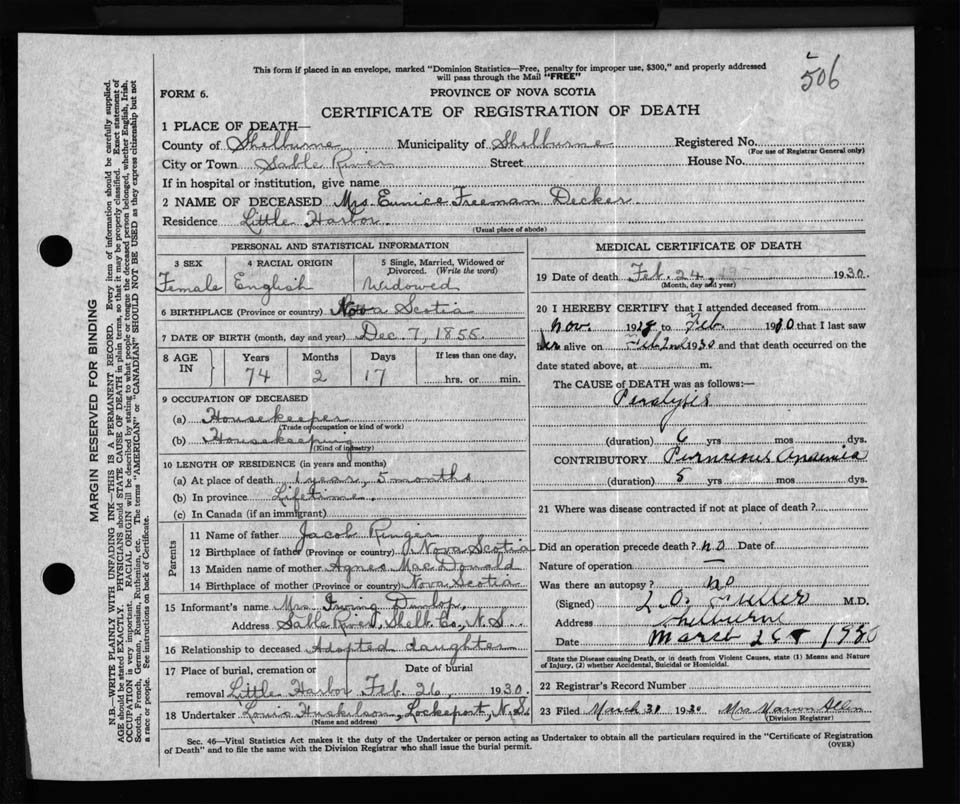 506
This form if placed in an envelope, marked "Dominion Statistics—Free, penalty for improper use, $300," and properly addressed
will pass through the Mail "FREE"
FORM 6.
PROVINCE OF NOVA SCOTIA
CERTIFICATE OF REGISTRATION OF DEATH
1 PLACE OF DEATH—
County of Shelburne Municipality of Shelburne Registered No.
(For use of Registrar General only)
City or Town Sable River Street House No.
If in hospital or institution, give name
2 NAME OF DECEASED Mrs. Eunice Freeman Decker
Residence Little Harbor
(Usual place of abode)
PERSONAL AND STATISTICAL INFORMATION
3 SEX 4 RACIAL ORIGIN 5 Single, Married, Widowed or Divorced. (Write the word)
Female English Widowed
6 BIRTHPLACE (Province or country) Nova Scotia
7 DATE OF BIRTH (month, day and year) Dec. 7, 1855.
8 AGE IN Years Months Days If less than one day,
74 2 17 hrs. or min.
9 OCCUPATION OF DECEASED
(a) Housekeeper
(Trade or occupation or kind of work)
(b) Housekeeping
(Kind of industry)
10 LENGTH OF RESIDENCE (in years and months)
(a) At place of death 1 year, 5 months
(b) In province Lifetime
(c) In Canada (if an immigrant)
Parents
11 Name of father Jacob Ringer
12 Birthplace of father (Province or country) Nova Scotia
13 Maiden name of mother Agnes MacDonald
14 Birthplace of mother (Province or country) Nova Scotia
15 Informant's name Mrs. Irving Dunlop,
Address Sable River, Shelb. Co., N.S.
16 Relationship to deceased Adopted daughter
17 Place of burial, cremation or Date of burial
removal Little Harbor Feb. 26, 1930.
18 Undertaker Louis Huskilson, Lockeport, N.S.
(Name and address)
MEDICAL CERTIFICATE OF DEATH
19 Date of death Feb. 24, 1930.
(Month, day and year)
20 I HEREBY CERTIFY that I attended deceased from
Nov. 1928 to Feb. 1930 that I last saw
her alive on Feb 2nd 1930 and that death occurred on the
date stated above, at m.
The CAUSE of DEATH was as follows:—
Peralysis
(duration) 6 yrs mos dys.
CONTRIBUTORY Pernicious Anaemia
(duration) 5 yrs mos. dys.
21 Where was disease contracted if not at place of death?
Did an operation precede death? no Date of
Nature of operation —
Was there an autopsy? no
(Signed) L.O. Fuller M.D.
Address Shelburne
Date March 26 1930
State the Disease causing Death, or in death from Violent Causes, state (1) Means and Nature
of Injury, (2) whether Accidental, Suicidal or Homicidal.
22 Registrar's Record Number
23 Filed March 30 1930 Mrs Marion Allen
(Division Registrar)
Sec. 46—Vital Statistics Act makes it the duty of the Undertaker or person acting as Undertaker to obtain all the particulars required in the "Certificate of Registration
of Death" and to file the same with the Division Registrar who shall issue the burial permit.
(OVER)
MARGIN RESERVED FOR BINDING
N.B.—WRITE PLAINLY WITH UNFADING INK—THIS IS A PERMANENT RECORD. Every item of information should be carefully supplied.
AGE should be stated EXACTLY. PHYSICIANS should STATE CAUSE OF DEATH in plain terms, so that it may be properly classified. Exact statement of
OCCUPATION is very important. RACIAL ORIGIN will be described by stating to what people or tongue the deceased person belonged, whether English, Irish,
Scotch, French, German, Russian, Ruthenian, etc. The terms "AMERICAN" or "CANADIAN" SHOULD NOT BE USED as they express citizenship but not
a race or people. See instructions on back of Certificate.